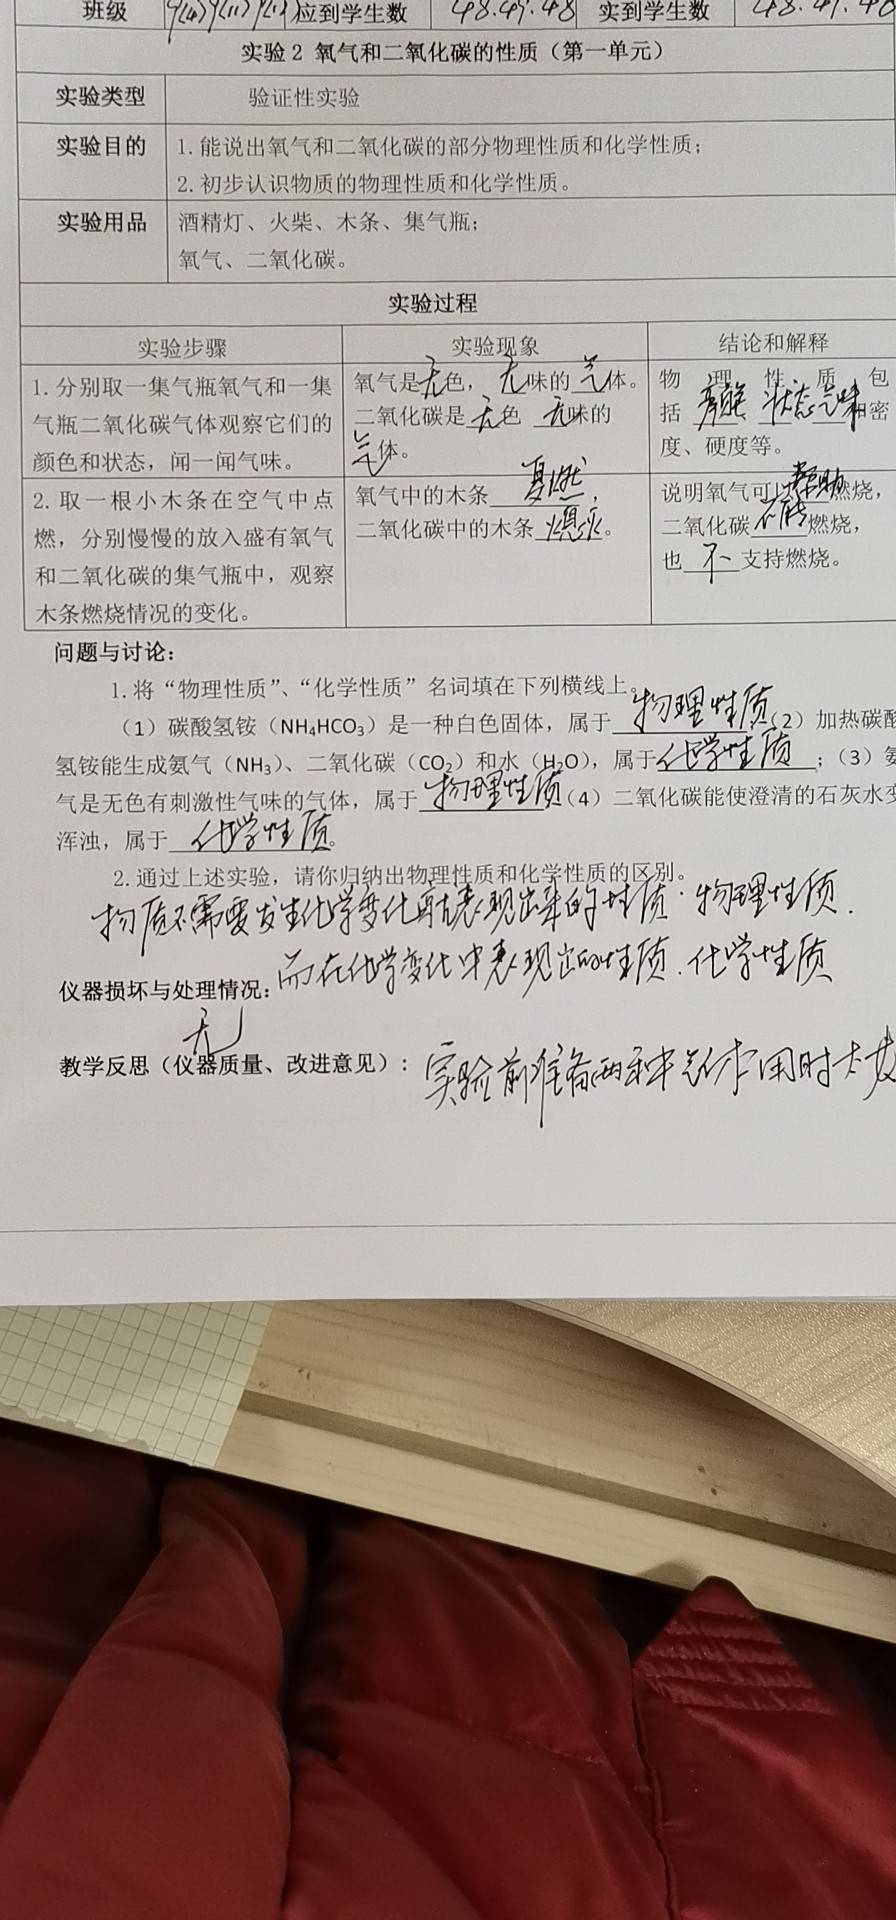 班级 9(4)9(11) 应到学生数 48.47.48 实到学生数 48.47.48
实验2 氧气和二氧化碳的性质（第一单元）
实验类型 验证性实验
实验目的 1.能说出氧气和二氧化碳的部分物理性质和化学性质；
2.初步认识物质的物理性质和化学性质。
实验用品 酒精灯、火柴、木条、集气瓶；
氧气、二氧化碳。
实验过程
实验步骤 实验现象 结论和解释
1.分别取一集气瓶氧气和一集 氧气是无色，无味的气体。 物理性质包
气瓶二氧化碳气体观察它们的 二氧化碳是无色 无味的 括 状态 气味 密
颜色和状态，闻一闻气味。 气体。 度、硬度等。
2.取一根小木条在空气中点 氧气中的木条 复燃， 说明氧气可以帮助燃烧，
燃，分别慢慢的放入盛有氧气 二氧化碳中的木条 熄灭。 二氧化碳 不能 燃烧，
和二氧化碳的集气瓶中，观察 也 不 支持燃烧。
木条燃烧情况的变化。
问题与讨论：
1.将“物理性质”、“化学性质”名词填在下列横线上。
（1）碳酸氢铵（NH₄HCO₃）是一种白色固体，属于 物理性质；（2）加热碳酸
氢铵能生成氨气（NH₃）、二氧化碳（CO₂）和水（H₂O），属于 化学性质；（3）氨
气是无色有刺激性气味的气体，属于 物理性质（4）二氧化碳能使澄清的石灰水变
浑浊，属于 化学性质。
2.通过上述实验，请你归纳出物理性质和化学性质的区别。
物质不需要发生化学变化就表现出来的性质．物理性质．
而在化学变化中表现出的性质．化学性质
仪器损坏与处理情况：
无
教学反思（仪器质量、改进意见）：实验前准备两种气体用时太长